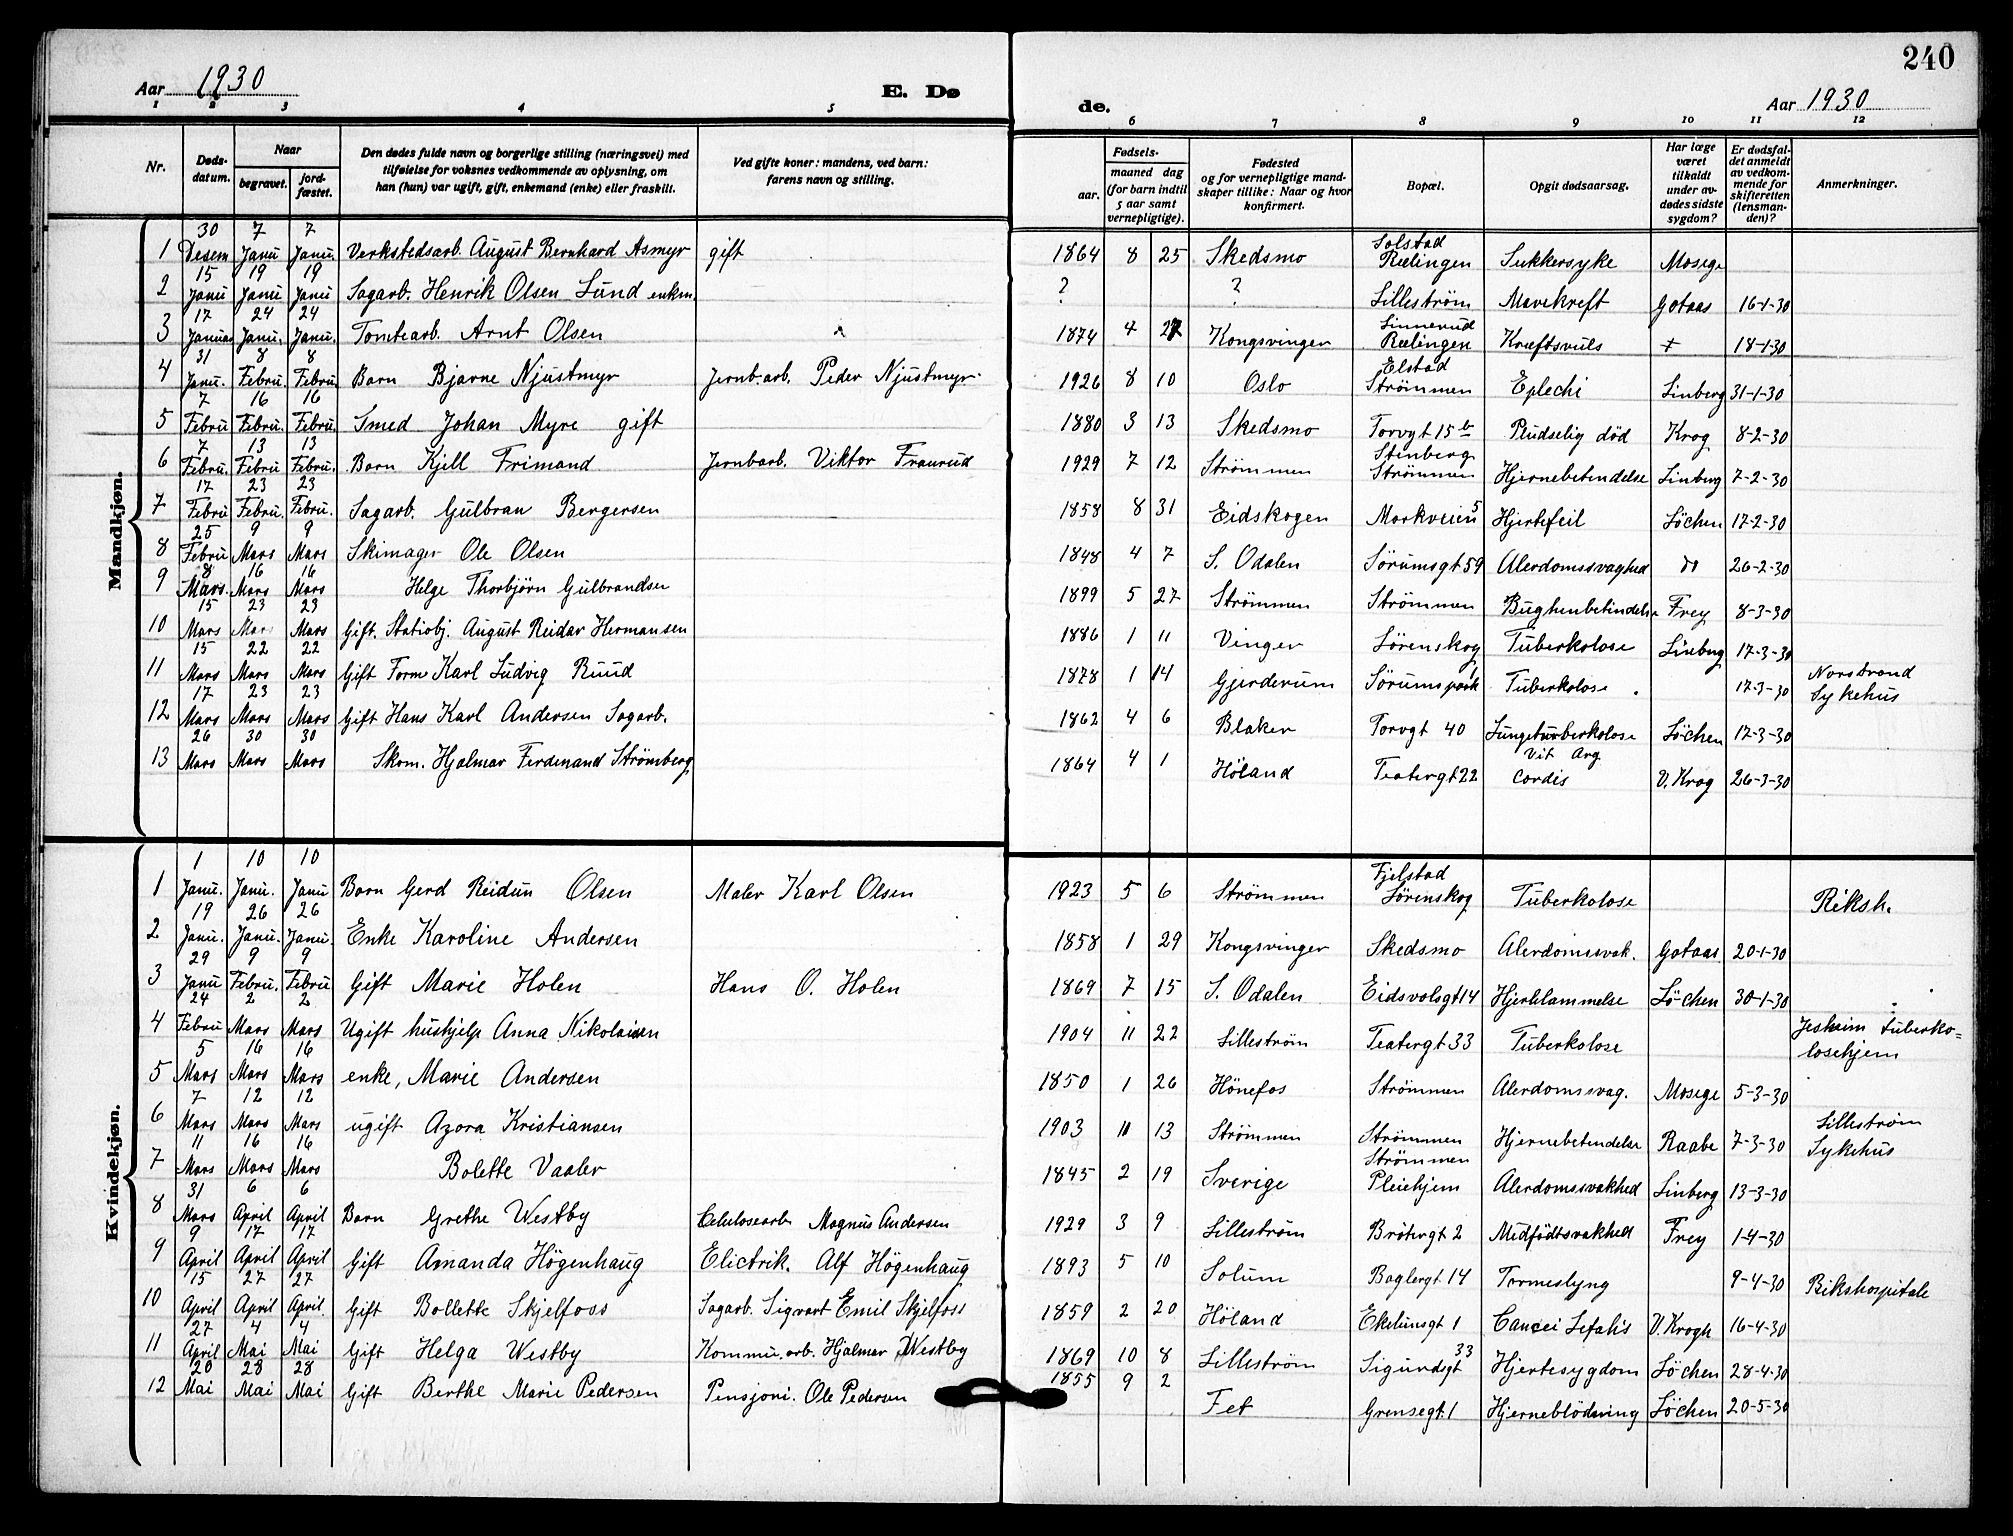 240
Aar 1930
E. Døde.
Aar 1930
1 2 3 4 5 6 7 8 9 10 11 12
Nr.
Døds-datum.
Naar
begravet.
jord-fæstet.
Den dødes fulde navn og borgerlige stilling (næringsvei) med
tilføielse for voksnes vedkommende av oplysning, om
han (hun) var ugift, gift, enkemand (enke) eller fraskilt.
Ved gifte koner: mandens, ved barn:
farens navn og stilling.
Fødsels-
aar.
maaned dag
(for barn indtil
5 aar samt
vernepligtige).
Fødested
og for vernepligtige mand-
skaper tillike: Naar og hvor
konfirmert.
Bopæl.
Opgit dødsaarsag.
Har læge
været
tilkaldt
under av-
dødes sidste
sygdom?
Er dødsfal-
det anmeldt
av vedkom-
mende for
skifteretten
(lensman-
den)?
Anmerkninger.
Mandkjøn.
1 30 Desem 7 Janu 7 Janu. Verkstedsarb. August Bernhard Asmyr gift 1864 8 25 Skedsmo Solstad Rælingen Sukkersyke Mosege
2 15 Janu 19 Janu 19 Janu Sagarb. Henrik Olsen Lund enkm. ? ? Lilleström Mavekreft Gotaas 16-1-30
3 17 Januar 24 Janu. 24 Janu. Tomtearb. Arnt Olsen 1874 4 27 Kongsvinger Linnerud Rælingen Kræftsvuls + 18-1-30
4 31 Janu. 8 Febru. 8 Febru. Barn Bjarne Njustmyr Jernb.arb. Peder Njustmyr. 1926 8 10 Oslo Elstad Strömmen Eplechi Linberg 31-1-30
5 7 Febru 16 Febru. 16 Febru. Smed Johan Myre gift 1880 3 13 Skedsmo Torvgt 15 b Pludselig död Krog 8-2-30
6 7 Febru. 13 Febru 13 Febru. Barn Kjell Frimand Jernbarb. Viktor Fraurud 1929 7 12 Strömmen Stenberg Strömmen Hjernebetendelse Linberg 7-2-30
7 17 Febru 23 Febru. 23 Febru. Sagarb. Gulbran Bergersen 1858 8 31 Eidskogen Markveien 5 Hjertefeil Löchen 17-2-30
8 25 Febru 9 Mars 9 Mars Skimager Ole Olsen 1848 4 7 S. Odalen Sörumsgt 59 Alerdomssvaghed do 26-2-30
9 8 Mars. 16 Mars 16 Mars Helge Thorbjörn Gulbrandsen 1899 5 27 Strömmen Strömmen Bughenbetindelse Frey 8-3-30
10 15 Mars 23 Mars 23 Mars Gift. Statiobj. August Reidar Hermansen 1886 1 11 Vinger Lörenskog Tuberkolose Linberg 17-3-30
11 15 Mars 22 Mars 22 Mars Gift Form Karl Ludvig Ruud 1878 1 14 Gjerderum Sörumspark Tuberkolose 17-3-30 Norstrand Sykehus
12 17 Mars 23 Mars 23 Mars Gift Hans Karl Andersen Sagarb. 1862 4 6 Blaker Torvgt 40 Lungetuberkolose Löchen 17-3-30
13 26 Mars 30 Mars 30 Mars Skom. Hjalmar Ferdenand Strömberg 1864 4 1 Höland Teatergt 22 Vit Arg cordis V. Krog 26-3-30
Kvindekjøn.
1 1 Janu. 10 Janu. 10 Janu Barn Gerd Reidun Olsen Maler Karl Olsen 1923 5 6 Strömmen Fjelstad Lörenskog Tuberkolose Riksh.
2 19 Janu. 26 Janu. 26 Janu. Enke Karoline Andersen 1858 1 29 Kongsvinger Skedsmo Alerdomssvak. Gotaas 20-1-30
3 29 Janu 9 Febru. 9 Febru Gift Marie Holen Hans O. Holen 1869 7 15 S. Odalen Eidsvolsgt 14 Hjertelammelse Löchen 30-1-30
4 24 Febru 2 Mars 2 Mars Ugift hushjelp Anna Nikolaisen 1904 11 22 Lilleström Teatergt 33 Tuberkolose Jesheim tuberko=losehjem
5 5 Mars 16 Mars 16 Mars enke, Marie Andersen 1850 1 26 Hönefos Strömmen Alerdomssvag. Mosege 5-3-30
6 7 Mars 12 Mars 12 Mars ugift Azora Kristiansen 1903 11 13 Strömmen Strömmen Hjernebetendelse Raabe 7-3-30 Lilleström Sykehus
7 11 Mars 16 Mars 16 Mars Bolette Vaaler 1845 2 19 Sverige Strömmen Pleiehjem Alerdomssvakhed Linberg 13-3-30
8 31 Mars 6 April 6 April Barn Grethe Westby Celulosearb Magnus Andersen 1929 3 9 Lilleström Brötergt 2 Medfödtsvakhed Frey 1-4-30
9 9 April 17 April 17 April Gift Amanda Högenhaug Elictrik. Alf Högenhaug 1893 5 10 Solum Baglergt 14 Tarmeslyng 9-4-30 Rikshospitale
10 15 April 27 April 27 April. Gift Bollette Skjelfoss Sagarb. Sigvart Emil Skjelfoss 1859 2 20 Höland Ekelunsgt 1 Cancei Lefalis V. Krogh 16-4-30
11 27 April 4 Mai 4 Mai Gift Helga Westby Kommu.arb. Hjalmar Westby 1869 10 8 Lilleström Sigurdsgt 33 Hjertesygdom Löchen 28-4-30
12 20 Mai 28 Mai 28 Mai Gift Berthe Marie Pedersen Pensjoni. Ole Pedersen 1855 9 2 Fet Grensegt. 1 Hjerneblödning Löchen 20-5-30